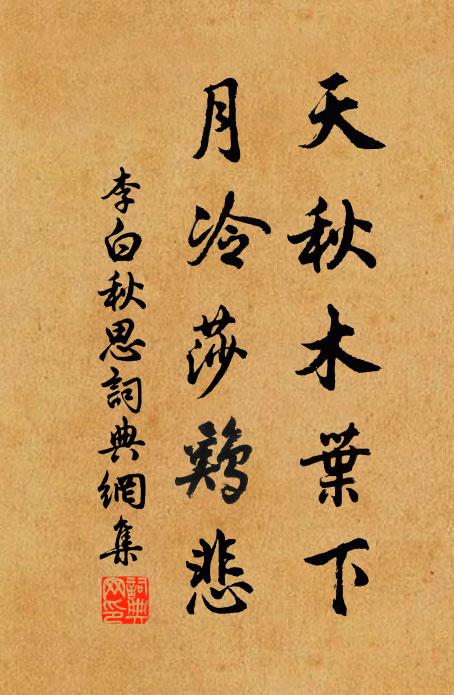 天秋木葉下
月冷莎鷄悲
李白秋思詞典網集
詞典網印